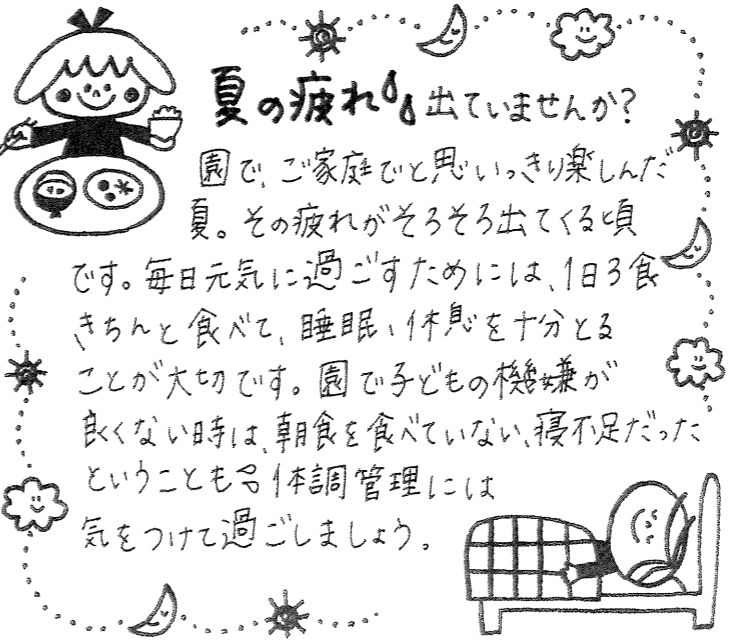 夏の疲れ出ていませんか？
園で、ご家庭でと思いっきり楽しんだ
夏。その疲れがそろそろ出てくる頃
です。毎日元気に過ごすためには、1日3食
きちんと食べて、睡眠、休息を十分とる
ことが大切です。園で子どもの機嫌が
良くない時は、朝食を食べていない、寝不足だった
ということも。体調管理には
気をつけて過ごしましょう。